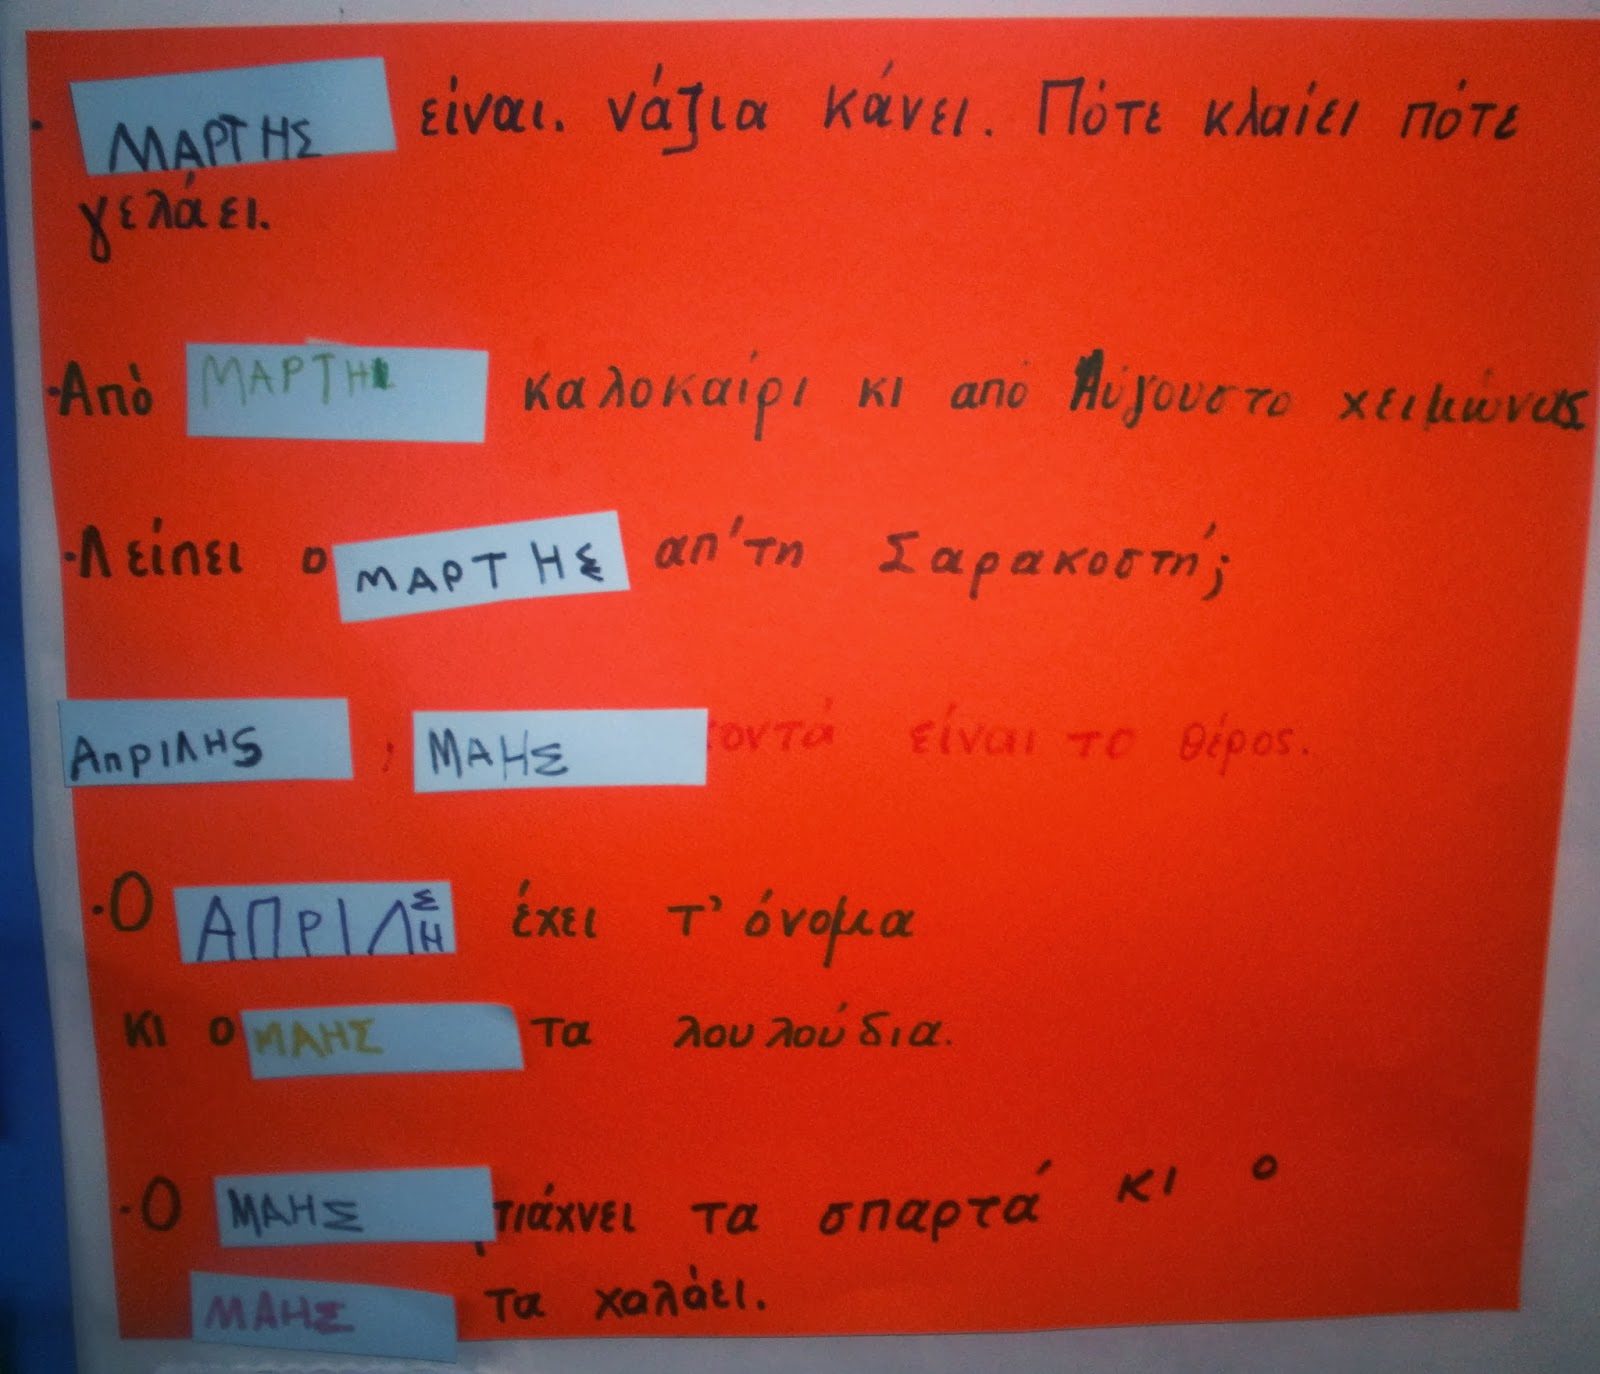 · ΜΑΡΤΗΣ είναι. νάζια κάνει. Πότε κλαίει πότε
γελάει.
·Από ΜΑΡΤΗ καλοκαίρι κι από Αύγουστο χειμώνας
·Λείπει ο ΜΑΡΤΗΣ απ'τη Σαρακοστή;
ΑπΡΙΛΗς ; ΜΑΗΣ κοντά είναι το θέρος.
·Ο ΑΠΡΙΛΗΣ έχει τ' όνομα
κι ο ΜΑΗΣ τα λουλούδια.
·Ο ΜΑΗΣ φτιάχνει τα σπαρτά κι ο
ΜΑΗΣ τα χαλάει.